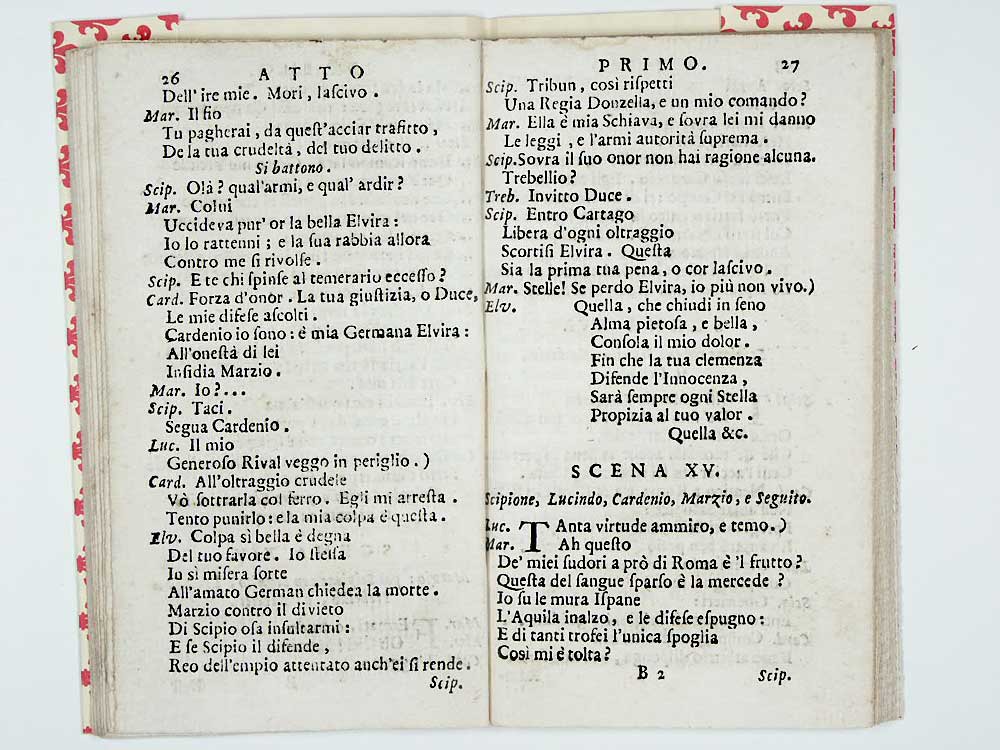 26 ATTO
Dell' ire mie. Mori, laſcivo.
Mar. Il fio
Tu pagherai, da queſt'acciar trafitto,
De la tua crudeltà, del tuo delitto.
Si battono.
Scip. Olà? qual'armi, e qual' ardir?
Mar. Colui
Uccideva pur' or la bella Elvira:
Io lo rattenni; e la ſua rabbia allora
Contro me ſi rivolſe.
Scip. E te chi ſpinſe al temerario ecceſſo?
Card. Forza d'onor. La tua giuſtizia, o Duce,
Le mie difeſe aſcolti.
Cardenio io ſono: è mia Germana Elvira:
All'oneſtà di lei
Inſidia Marzio.
Mar. Io?...
Scip. Taci.
Segua Cardenio.
Luc. Il mio
Generoſo Rival veggo in periglio.)
Card. All'oltraggio crudele
Vò ſottrarla col ferro. Egli mi arreſta.
Tento punirlo: e la mia colpa è queſta.
Elv. Colpa sì bella è degna
Del tuo favore. Io ſteſſa
In sì miſera ſorte
All'amato German chiedea la morte.
Marzio contro il divieto
Di Scipio oſa inſultarmi:
E ſe Scipio il difende,
Reo dell'empio attentato anch'ei ſi rende.
Scip.
PRIMO. 27
Scip. Tribun, così riſpetti
Una Regia Donzella, e un mio comando?
Mar. Ella è mia Schiava, e ſovra lei mi danno
Le leggi, e l'armi autorità ſuprema.
Scip. Sovra il ſuo onor non hai ragione alcuna.
Trebellio?
Treb. Invitto Duce.
Scip. Entro Cartago
Libera d'ogni oltraggio
Scortiſi Elvira. Queſta
Sia la prima tua pena, o cor laſcivo.
Mar. Stelle! Se perdo Elvira, io più non vivo.)
Elv. Quella, che chiudi in ſeno
Alma pietoſa, e bella,
Conſola il mio dolor.
Fin che la tua clemenza
Difende l'Innocenza,
Sarà ſempre ogni Stella
Propizia al tuo valor.
Quella &c.
SCENA XV.
Scipione, Lucindo, Cardenio, Marzio, e Seguito.
Luc. TAnta virtude ammiro, e temo.)
Mar. Ah queſto
De' miei ſudori a prò di Roma è 'l frutto?
Queſta del ſangue ſparſo è la mercede?
Io ſu le mura Iſpane
L'Aquila inalzo, e le difeſe eſpugno:
E di tanti trofei l'unica ſpoglia
Così mi è tolta?
B 2 Scip.